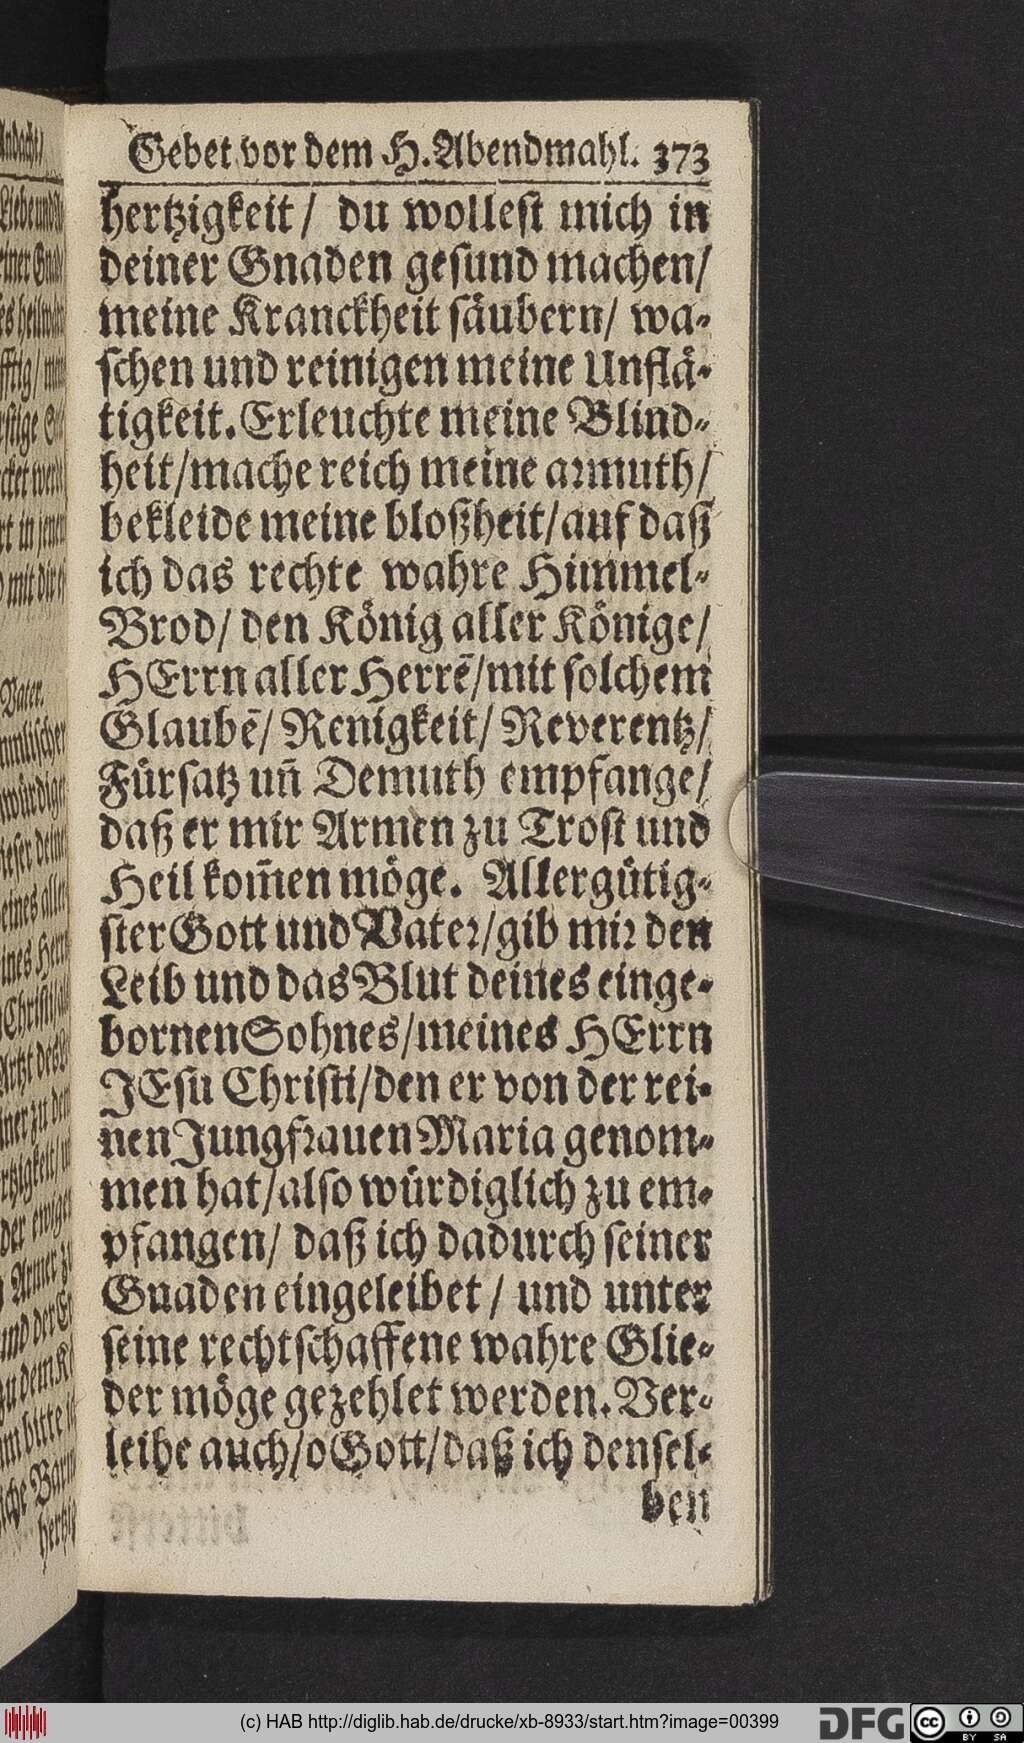 Gebet vor dem H. Abendmahl. 373
hertzigkeit/ du wollest mich in
deiner Gnaden gesund machen/
meine Kranckheit säubern/ wa-
schen und reinigen meine Unflä-
tigkeit. Erleuchte meine Blind-
heit/mache reich meine armuth/
bekleide meine bloßheit/auf daß
ich das rechte wahre Himmel-
Brod/ den König aller Könige/
HErrn aller Herrē/mit solchem
Glaubē/ Renigkeit/ Reverentz/
Fürsatz uñ Demuth empfange/
daß er mir Armen zu Trost und
Heil kom̄en möge. Allergütig-
ster Gott und Vater/gib mir den
Leib und das Blut deines einge-
bornen Sohnes/meines HErrn
JEsu Christi/den er von der rei-
nen Jungfrauen Maria genom-
men hat/also würdiglich zu em-
pfangen/ daß ich dadurch seiner
Gnaden eingeleibet / und unter
seine rechtschaffene wahre Glie-
der möge gezehlet werden. Ver-
leihe auch/o Gott/daß ich densel-
ben
(c) HAB http://diglib.hab.de/drucke/xb-8933/start.htm?image=00399
DFG cc BY SA